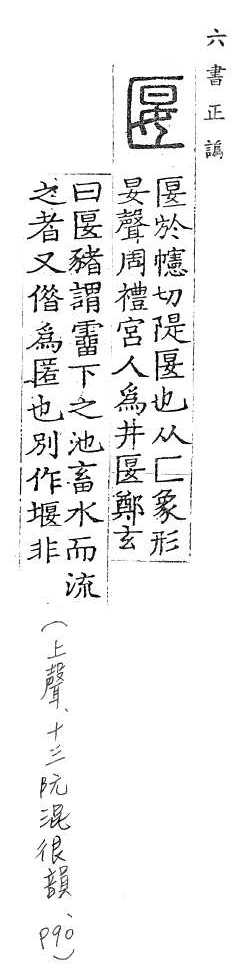 六書正譌
匽
匽於幰切隄匽也从匚象形
晏聲周禮宮人為井匽鄭玄
曰匽豬謂霤下之池畜水而流
之者又僭為匿也別作堰非
(上聲、十三阮混很韻、P90)